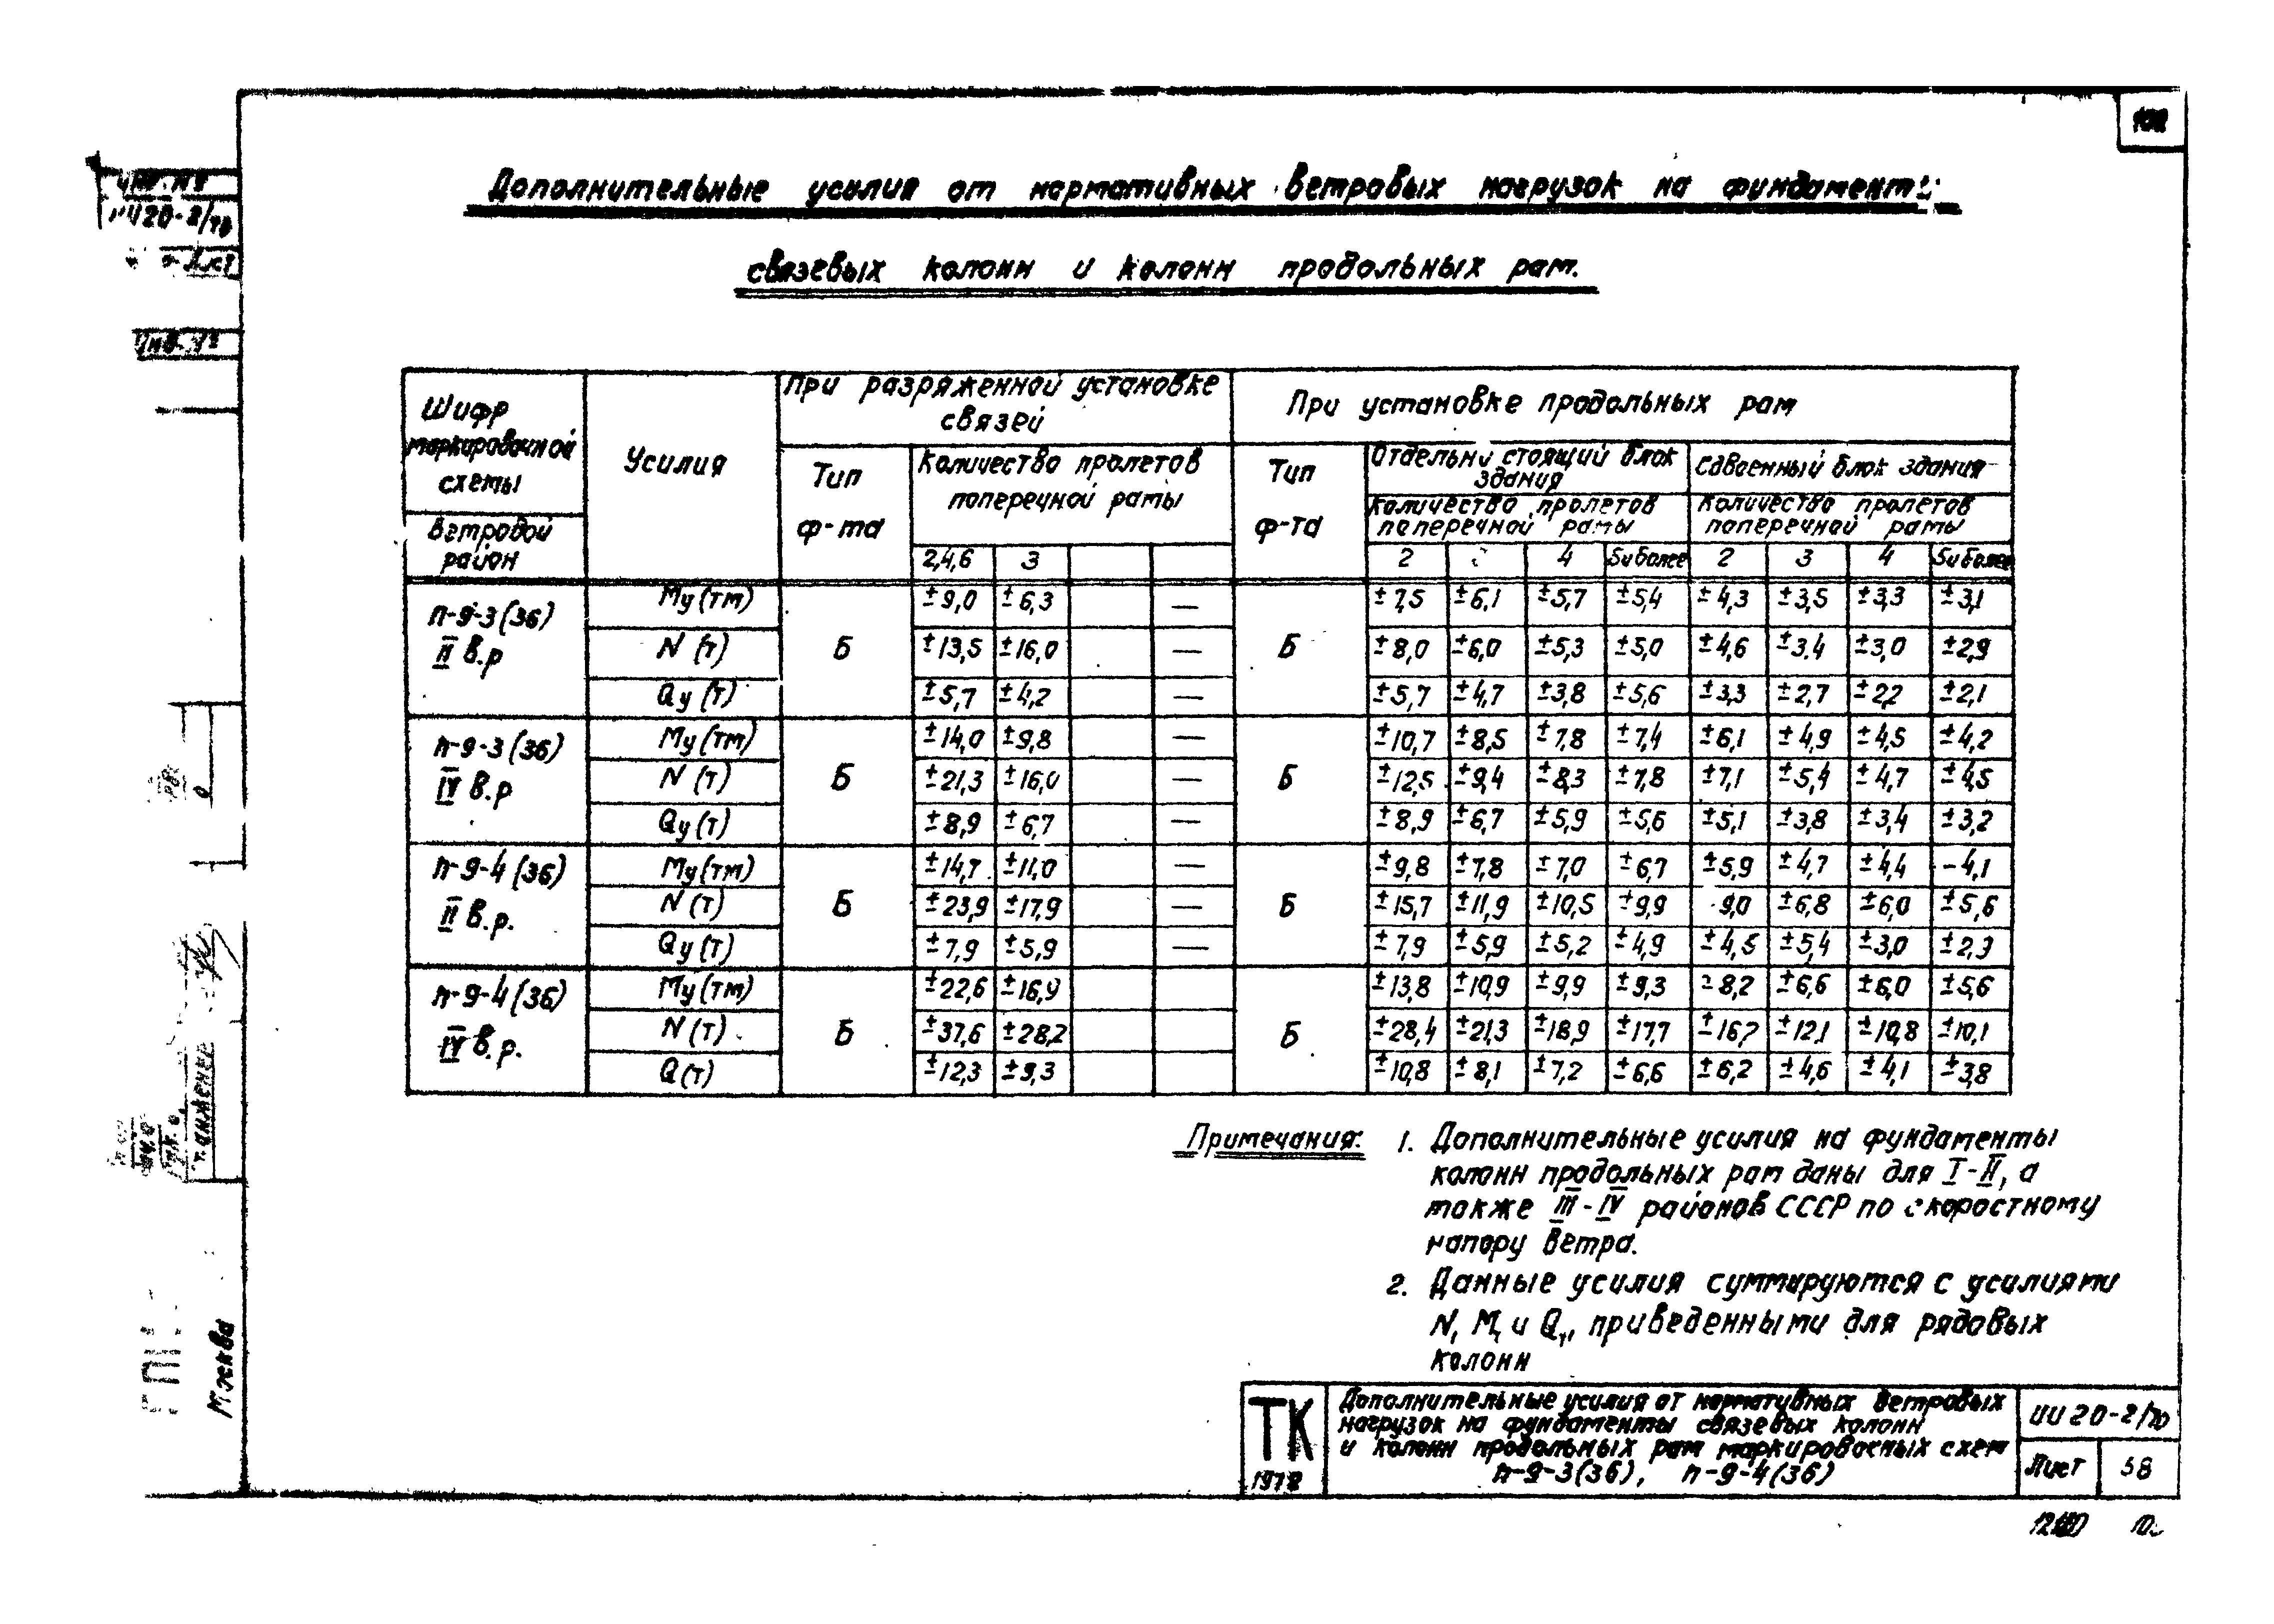 Дополнительные усилия от нормативных ветровых нагрузок на фундаменты
связевых колонн и колонн продольных рам.
Шифр маркировочной схемы
Ветровой район
Усилия
При разряженной установке связей
При установке продольных рам
Тип ф-та
Количество пролетов поперечной рамы
Тип ф-та
Отдельно стоящий блок здания
Сдвоенный блок здания
Количество пролетов поперечной рамы
Количество пролетов поперечной рамы
2,4,6 3 2 4 5и более 2 3 4 5и более
п-9-3(36) II в.р
Му(тм) ±9,0 ±6,3 — ±7,5 ±6,1 ±5,7 ±5,4 ±4,3 ±3,5 ±3,3 ±3,1
N (т) Б ±13,5 ±16,0 — Б ±8,0 ±6,0 ±5,3 ±5,0 ±4,6 ±3.4 ±3,0 ±2,9
Qу (т) ±5,7 ±4,2 — ±5,7 ±4,7 ±3,8 ±5,6 ±3,3 ±2,7 ±2,2 ±2,1
п-9-3(36) IV в.р
Му(тм) ±14,0 ±9,8 — ±10,7 ±8,5 ±7,8 ±7,4 ±6,1 ±4,9 ±4,5 ±4,2
N (т) Б ±21,3 ±16,0 — Б ±12,5 ±9,4 ±8,3 ±7,8 ±7,1 ±5,4 ±4,7 ±4,5
Qу(т) ±8,9 ±6,7 — ±8,9 ±6,7 ±5,9 ±5,6 ±5,1 ±3,8 ±3,4 ±3,2
п-9-4(36) II в.р.
Му(тм) ±14,7 ±11,0 — ±9,8 ±7,8 ±7,0 ±6,7 ±5,9 ±4,7 ±4,4 -4,1
N (т) Б ±23,9 ±17,9 — Б ±15,7 ±11,9 ±10,5 ±9,9 9,0 ±6,8 ±6,0 ±5,6
Qу(т) ±7,9 ±5,9 — ±7,9 ±5,9 ±5,2 ±4,9 ±4,5 ±5,4 ±3,0 ±2,9
п-9-4(36) IV в.р.
Му(тм) ±22,6 ±16,9 ±13,8 ±10,9 ±9,9 ±9,3 ±8,2 ±6,6 ±6,0 ±5,6
N (т) Б ±37,6 ±28,2 Б ±28,4 ±21,3 ±18,9 ±17,7 ±16,2 ±12,1 ±10,8 ±10,1
Q(т) ±12,3 ±9,3 ±10,8 ±8,1 ±7,2 ±6,6 ±6,2 ±4,6 ±4,1 ±3,8
Примечания: 1. Дополнительные усилия на фундаменты
колонн продольных рам даны для I-II, а
также III-IV районов СССР по скоростному
напору ветра.
2. Данные усилия суммируются с усилиями
N, М, и Q, приведенными для рядовых
колонн
ТК
1972
Дополнительные усилия от нормативных ветровых
нагрузок на фундаменты связевых колонн
и колонн продольных рам маркировочных схем
п-9-3(36), п-9-4(36)
ИИ 20-2/70
Лист 58
ИИ20-2/70
Инв. №
Москва